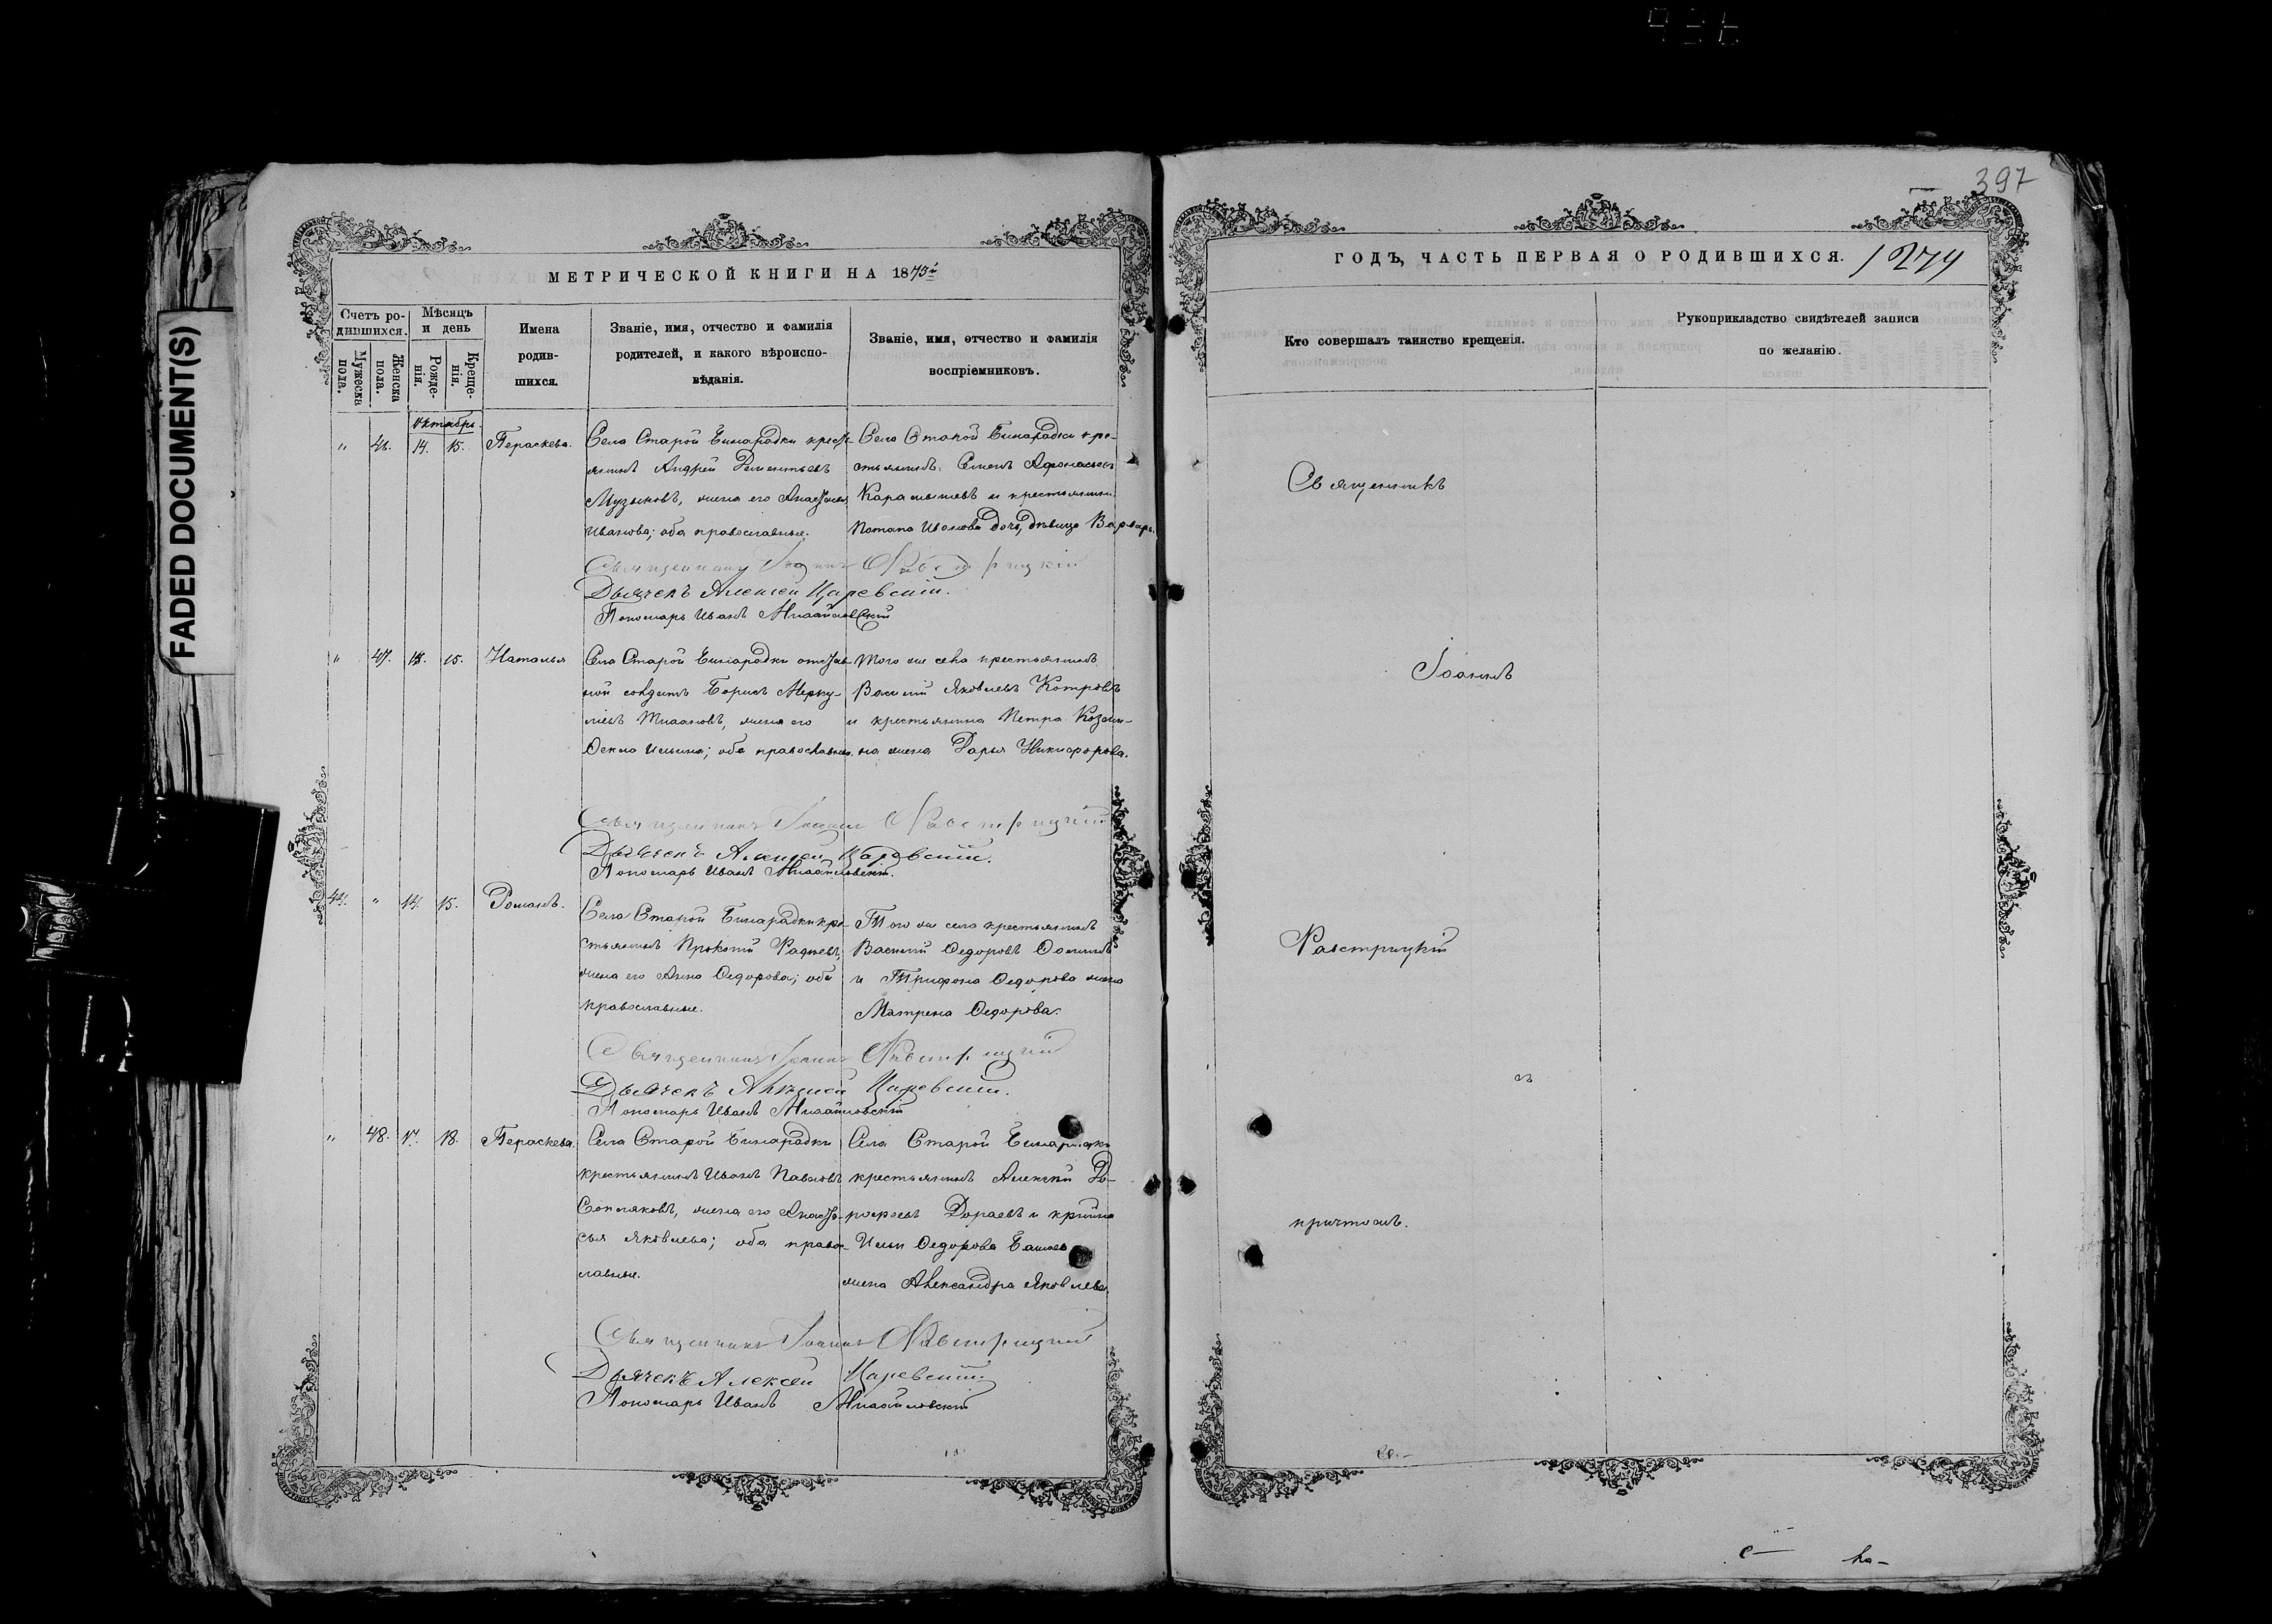 FADED DOCUMENT(S)
397
МЕТРИЧЕСКОЙ КНИГИ НА 1875й
Счетъ ро-
дившихся.
Мужеска
пола.
Женска
пола.
Мѣсяцъ
и день
Рожде-
нія.
Креще-
нія.
Имена
родив-
шихся.
Званіе, имя, отчество и фамилія
родителей, и какого вѣроиспо-
вѣданія.
Званіе, имя, отчество и фамилія
воспріемниковъ.
Октябрь.
" 46. 14. 15. Пераскева.
Села Старой Бинарадки крестья-
янинъ Андрей Дементьевъ
Музыковъ, жена его Анастасія
Иванова; оба православные.
Села Старой Бинарадки кре-
стьянинъ Семенъ Афонасьевъ
Карамышевъ и крестьянина
Потапа Иванова дочь, дѣвица Варвара.
Священникъ Іоаннъ Равстрицкій
Дьячекъ Алексей Царевскій.
Пономарь Иванъ Михайловскій
" 47. 15. Наталья
Села Старой Бинарадки отстав-
ной солдатъ Борисъ Мерку-
ліевъ жена его
Фекла Ильина; оба православные.
Того же села крестьянинъ
Василій Яковлевъ Котровъ
и крестьянина Петра Козьми-
на жена Дарья Никифорова.
Священникъ Іоаннъ Равстрицкій
Дьячекъ Алексей Царевскій.
Пономарь Иванъ Михайловскій.
44. " 14. 15. Романъ.
Села Старой Бинарадки кре-
стьянинъ Прокопій Радаевъ,
жена его Анна Федорова; оба
православные.
Того же села крестьянинъ
Василій Федоровъ
и Трифона Федорова жена
Матрена Федорова.
Священникъ Іоаннъ Равстрицкій
Дьячекъ Алексей Царевскій.
Пономарь Иванъ Михайловскій
" 48. 17. 18. Пераскева.
Села Старой Бинарадки
крестьянинъ Иванъ Павловъ
Сопляковъ, жена его Анаста-
сья Яковлева; оба право-
славные.
Села Старой Бинарадки
крестьянинъ Алексѣй До-
рофеевъ Дораевъ и
Ильи Федорова
жена Александра Яковлева
Священникъ Іоаннъ Равстрицкій
Дьячекъ Алексей Царевскій
Пономарь Иванъ Михайловскій
ГОДЪ, ЧАСТЬ ПЕРВАЯ О РОДИВШИХСЯ. 1274
Кто совершалъ таинство крещенія.
Рукоприкладство свидѣтелей записи
по желанію.
Священникъ
Іоаннъ
Равстрицкій
съ
причтомъ.